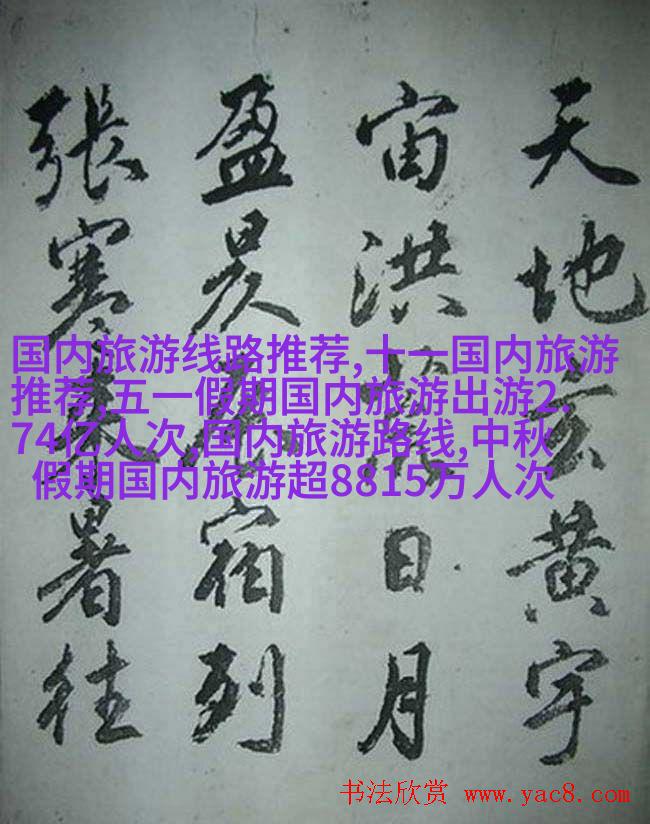 天地玄黄宇
宙洪荒日月
盈昃辰宿列
張寒来暑往
国内旅游线路推荐,十一国内旅游
推荐,五一假期国内旅游出游2.
74亿人次,国内旅游路线,中秋
假期国内旅游超8815万人次
书法欣赏 www.yac8.com